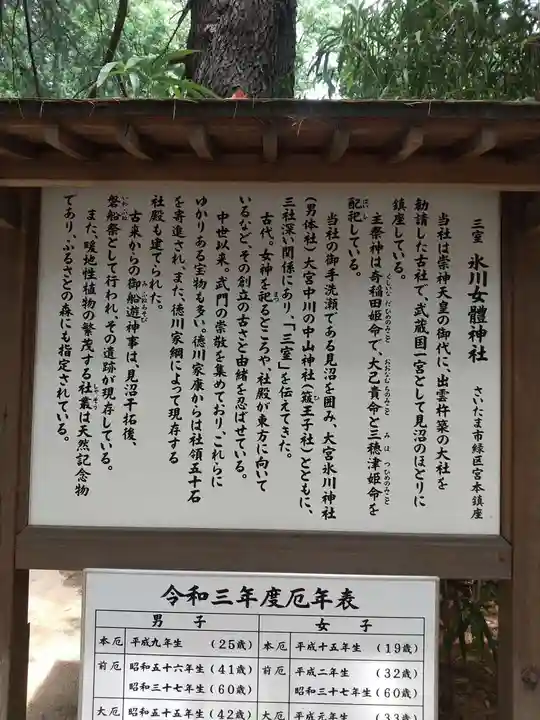 三室　氷川女體神社　さいたま市緑区宮本鎮座
当社は崇神天皇の御代に、出雲杵築の大社を
勧請した古社で、武蔵国一宮として見沼のほとりに
鎮座している。
主祭神は奇稲田姫命で、大己貴命と三穂津姫命を
くしいなだひめのみこと　おおなむちのみこと　みほつひめのみこと
配祀している。
はいし
当社の御手洗瀬である見沼を囲み、大宮氷川神社
（男体社）大宮中川の中山神社（簸王子社）とともに、
ひ
三社深い関係にあり、「三室」を伝えてきた。
古代。女神を祀るところや、社殿が東方に向いて
まつ
いるなど、その創立の古さと由緒を忍ばせている。
中世以来。武門の崇敬を集めており、これらに
ゆかりある宝物も多い。徳川家康からは社領五十石
を寄進され、また、徳川家綱によって現存する
社殿も建てられた。
古来からの御船遊神事は、見沼干拓後、
みふねあそび
磐船祭として行われ、その遺跡が現存している。
いわふね
また、暖地性植物の繁茂する社叢は天然記念物
しゃそう
であり、ふるさとの森にも指定されている。
令和三年度厄年表
男子　女子
本厄　平成九年生　（25歳）　本厄　平成十五年生　（19歳）
前厄　昭和五十六年生（41歳）　前厄　平成二年生　（32歳）
昭和三十七年生（60歳）　昭和三十七年生（60歳）
大厄　昭和五十五年生（42歳）　大厄　平成元年生　（33歳）